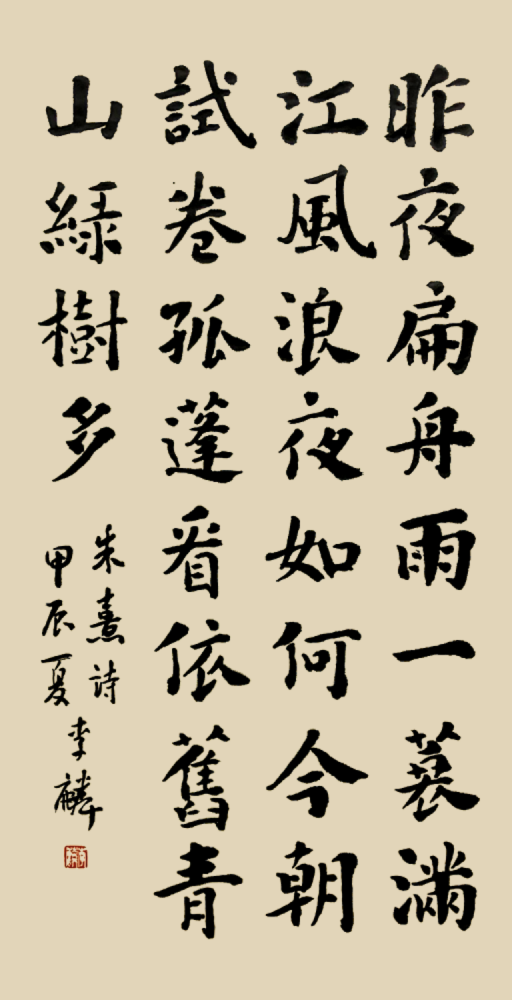 昨夜扁舟雨一蓑滿
江風浪夜如何今朝
試卷孤蓬看依舊青
山綠樹多
朱熹詩
甲辰夏李麟